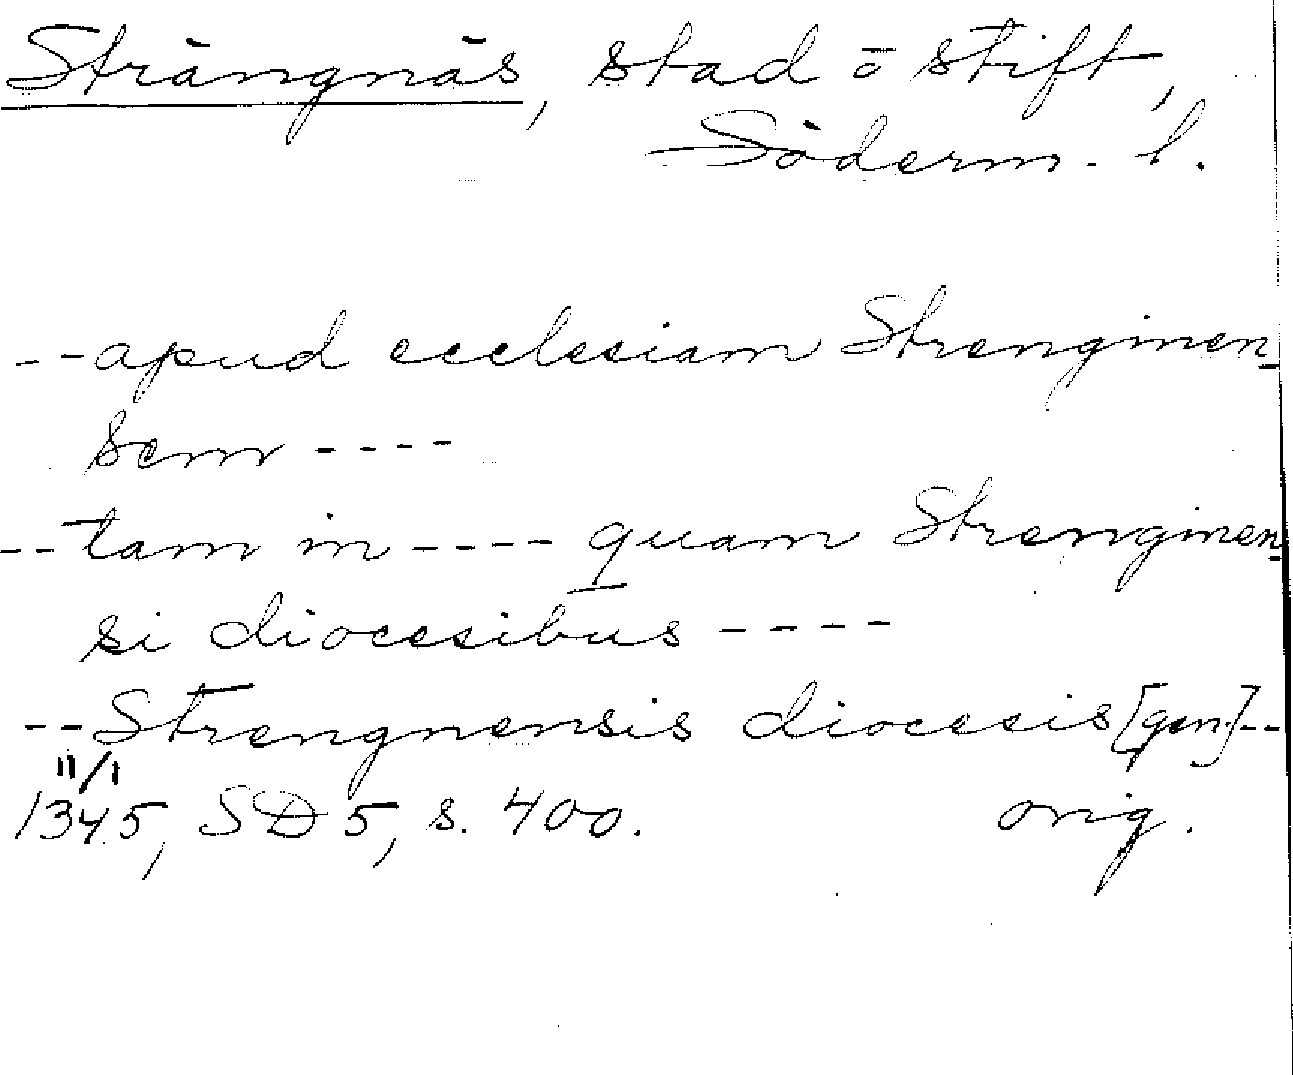 Strängnäs, stad o stift,
Söderm. l.
--apud ecclesiam Strenginen-
sem ----
--tam in ---- quam Strenginen-
si diocesibus ----
--Strengnensis diocesis [gen.]--
11/1
1345, SD 5, s. 400. orig.